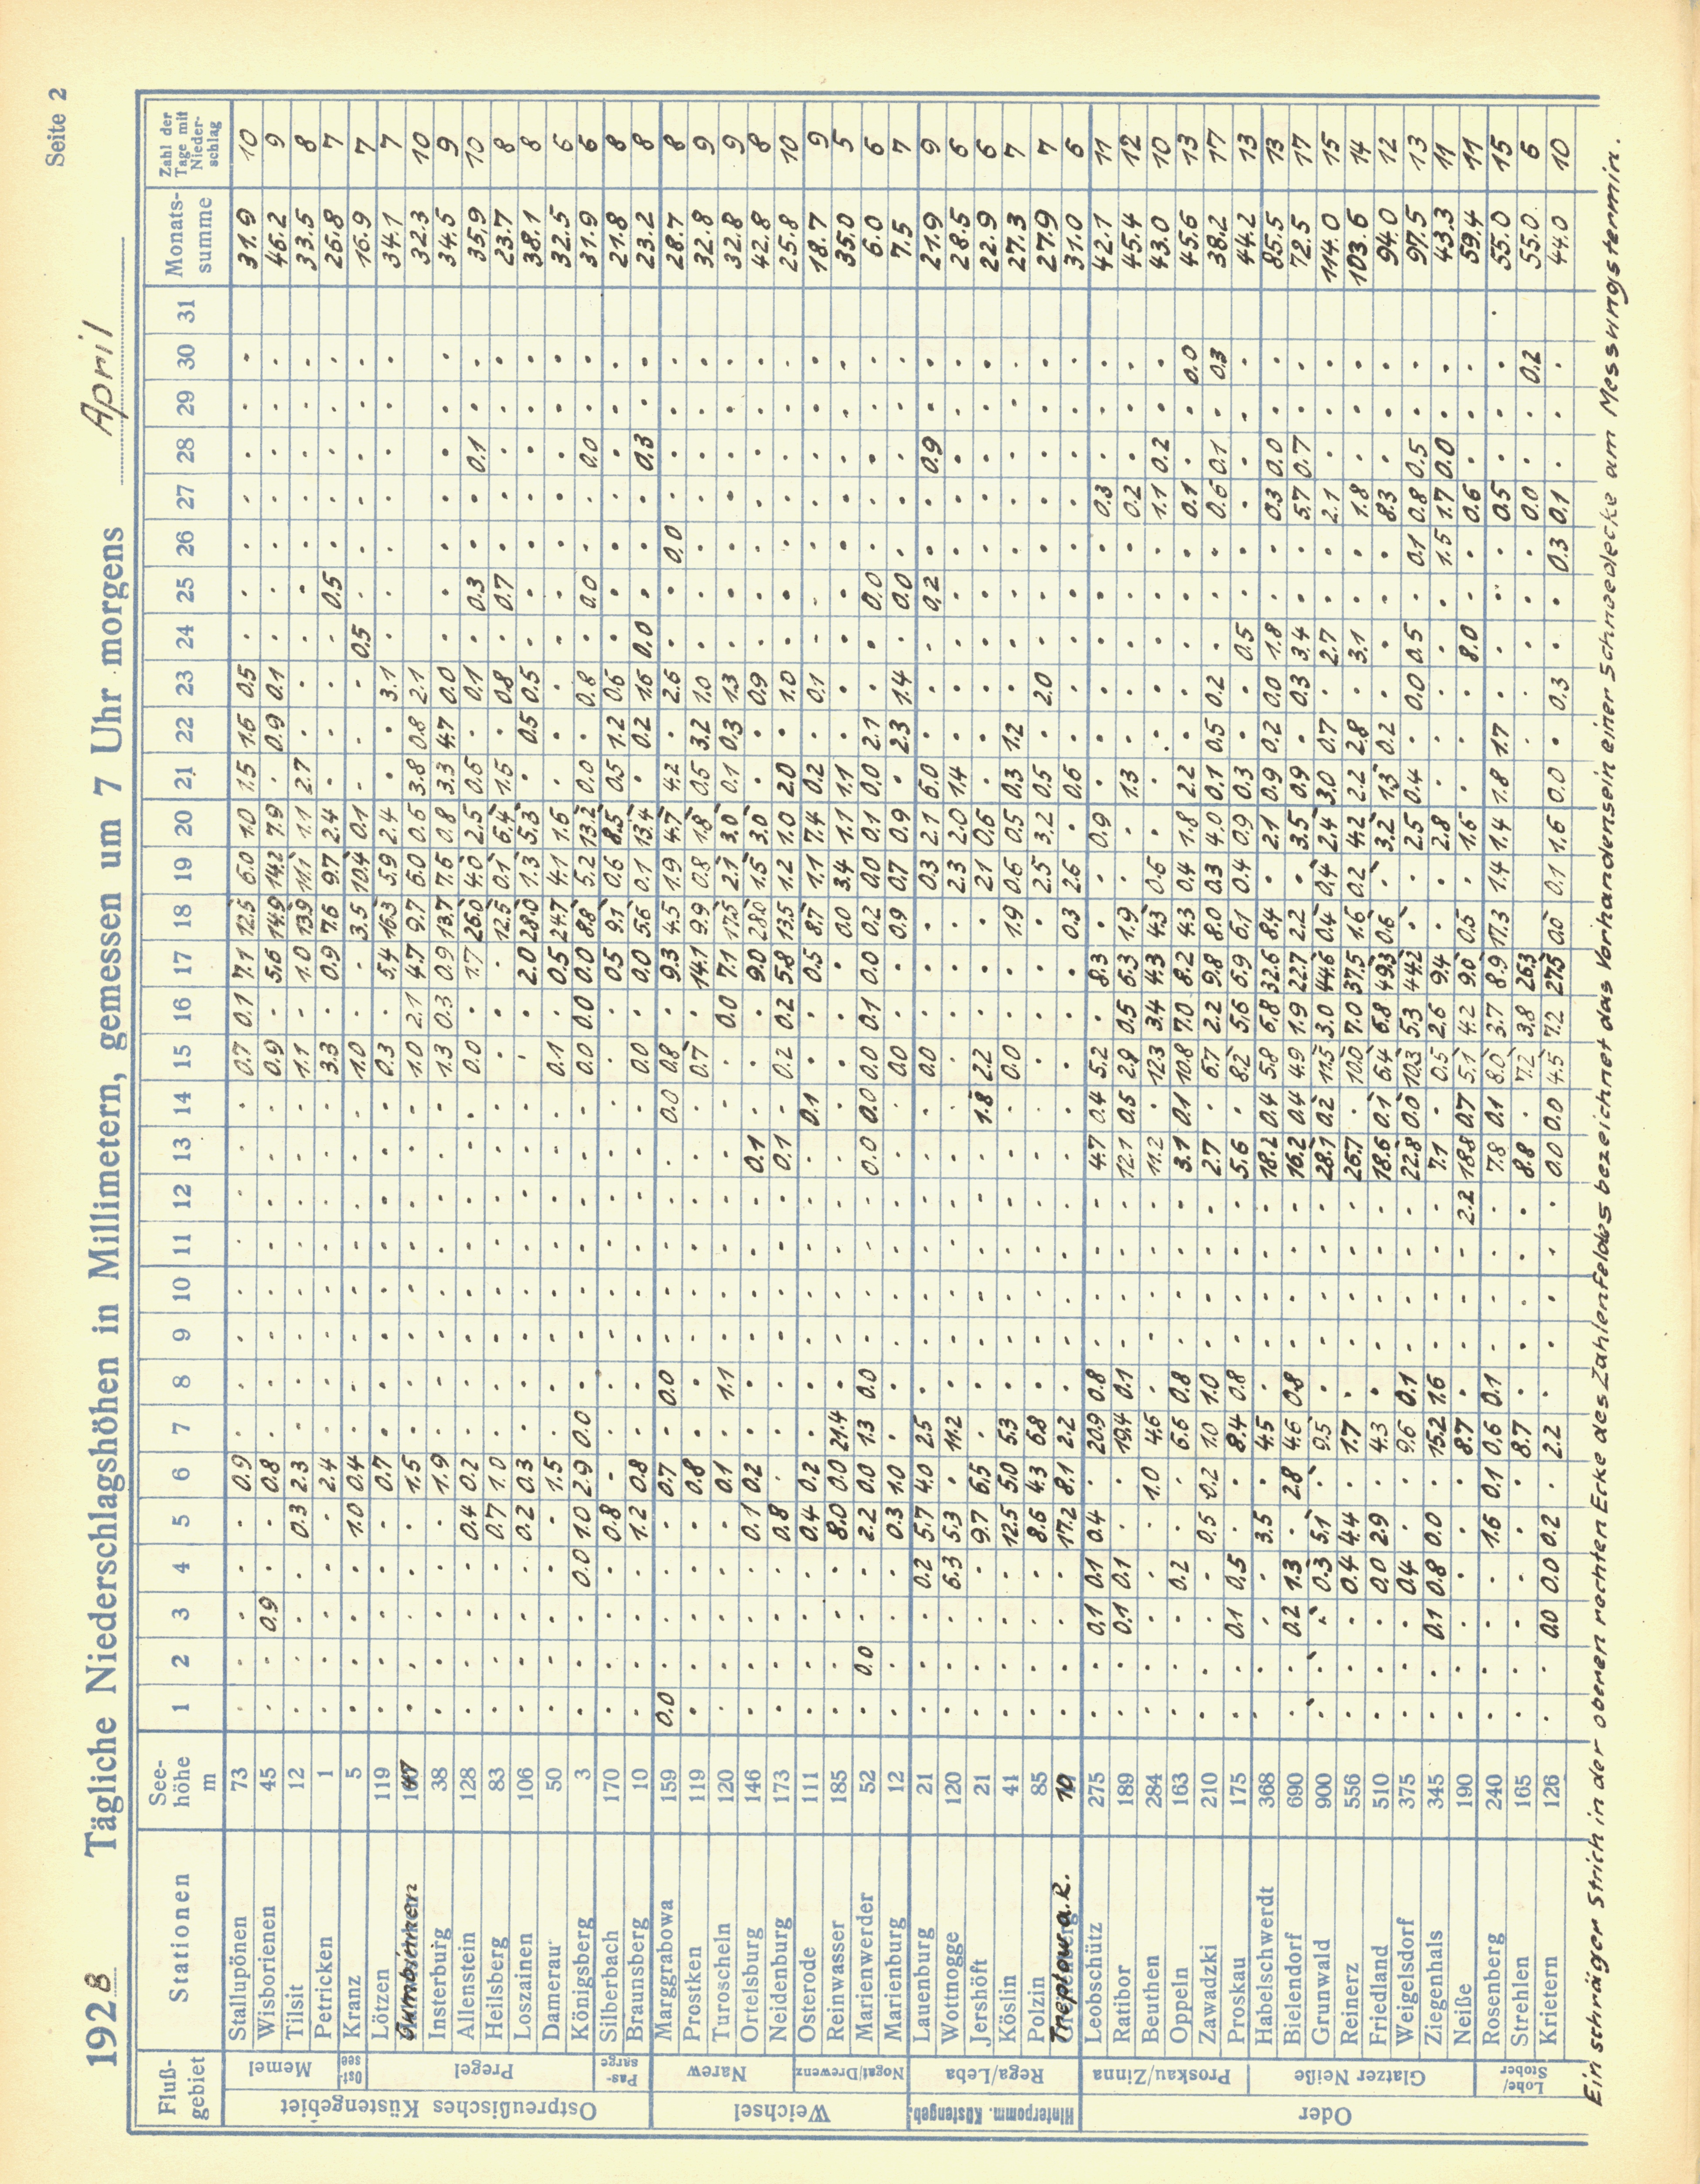 Seite 2
1928 Tägliche Niederschlagshöhen in Millimetern, gemessen um 7 Uhr morgens April
Fluß-gebiet Stationen See-höhe m 1 2 3 4 5 6 7 8 9 10 11 12 13 14 15 16 17 18 19 20 21 22 23 24 25 26 27 28 29 30 31 Monats-summe Zahl der Tage mit Nieder-schlag
Ostpreußisches Küstengebiet
Memel
Stallupönen 73 0.9 0.7 0.1 7.1 12.5 6.0 1.0 1.5 1.6 0.5 31.9 10
Wisborienen 45 0.9 0.8 0.9 5.6 14.9 14.2 7.9 0.9 0.1 46.2 9
Tilsit 12 0.3 2.3 1.1 1.0 13.9 11.1 1.1 2.7 33.5 8
Petricken 1 2.4 3.3 0.9 7.6 9.7 2.4 0.5 26.8 7
Ost-see
Kranz 5 1.0 0.4 1.0 3.5 10.4 0.1 0.5 16.9 7
Pregel
Lötzen 119 0.7 0.3 5.4 16.3 5.9 2.4 3.1 34.1 7
Gumbinnen 47 1.5 1.0 2.1 4.7 9.7 6.0 0.6 3.8 0.8 2.1 32.3 10
Insterburg 38 1.9 1.3 0.3 0.9 13.7 7.6 0.8 3.3 4.7 0.0 34.5 9
Allenstein 128 0.4 0.2 0.0 1.7 26.0 4.0 2.5 0.6 0.1 0.3 0.1 35.9 10
Heilsberg 83 0.7 1.0 12.5 0.1 6.4 1.5 0.8 0.7 23.7 8
Loszainen 106 0.2 0.3 2.0 28.0 1.3 5.3 0.5 0.5 38.1 8
Damerau 50 1.5 0.1 0.5 24.7 4.1 1.6 32.5 6
Königsberg 3 0.0 1.0 2.9 0.0 0.0 0.0 0.0 8.8 5.2 13.2 0.0 0.8 0.0 0.0 31.9 6
Pas-sarge
Silberbach 170 0.8 0.5 9.1 0.6 8.5 0.5 1.2 0.6 21.8 8
Braunsberg 10 1.2 0.8 0.0 0.0 5.6 0.1 13.4 0.2 1.6 0.0 0.3 23.2 8
Weichsel
Narew
Marggrabowa 159 0.0 0.7 0.0 0.0 0.8 9.3 4.5 1.9 4.7 4.2 2.6 0.0 28.7 8
Prostken 119 0.8 0.7 14.1 9.9 0.8 1.8 0.5 3.2 1.0 32.8 9
Turoscheln 120 0.1 1.1 0.0 7.1 17.5 2.1 3.0 0.1 0.3 1.3 32.8 9
Ortelsburg 146 0.1 0.2 0.1 9.0 28.0 1.5 3.0 0.9 42.8 8
Neidenburg 173 0.8 0.1 0.2 0.2 5.8 13.5 1.2 1.0 2.0 1.0 25.8 10
Nogat/Drewenz
Osterode 111 0.4 0.2 0.1 0.5 8.7 1.1 7.4 0.2 0.1 18.7 9
Reinwasser 185 8.0 0.0 21.4 0.0 3.4 1.1 1.1 35.0 5
Marienwerder 52 0.0 2.2 0.0 1.3 0.0 0.0 0.0 0.0 0.1 0.0 0.2 0.0 0.1 0.0 2.1 0.0 6.0 6
Marienburg 12 0.3 1.0 0.0 0.9 0.7 0.9 2.3 1.4 0.0 7.5 7
Hinterpomm. Küstengeb.
Rega/Leba
Lauenburg 21 0.2 5.7 4.0 2.5 0.0 0.3 2.1 6.0 0.2 0.9 21.9 9
Wottnogge 120 6.3 5.3 11.2 2.3 2.0 1.4 28.5 6
Jershöft 21 9.7 6.5 1.8 2.2 2.1 0.6 22.9 6
Köslin 41 12.5 5.0 5.3 0.0 1.9 0.6 0.5 0.3 1.2 27.3 7
Polzin 85 8.6 4.3 6.8 2.5 3.2 0.5 2.0 27.9 7
Treptow a. R. 10 17.2 8.1 2.2 0.3 2.6 0.6 31.0 6
Oder
Proskau/Zinna
Leobschütz 275 0.1 0.1 0.4 20.9 0.8 4.7 0.4 5.2 8.3 0.9 0.3 42.1 11
Ratibor 189 0.1 0.1 19.4 0.1 12.1 0.5 2.9 0.5 6.3 1.9 1.3 0.2 45.4 12
Beuthen 284 1.0 4.6 11.2 12.3 3.4 4.3 4.3 0.6 1.1 0.2 43.0 10
Oppeln 163 0.2 6.6 0.8 3.1 0.1 10.8 7.0 8.2 4.3 0.4 1.8 2.2 0.1 0.0 45.6 13
Zawadzki 210 0.5 0.2 1.0 1.0 2.7 6.7 2.2 9.8 8.0 0.3 4.0 0.1 0.5 0.2 0.6 0.1 0.3 38.2 17
Proskau 175 0.1 0.5 8.4 0.8 5.6 8.2 5.6 6.9 6.1 0.4 0.9 0.3 0.5 44.2 13
Glatzer Neiße
Habelschwerdt 368 3.5 4.5 18.2 0.4 5.8 6.8 32.6 8.4 2.1 0.9 0.2 0.0 1.8 0.3 0.0 85.5 13
Bielendorf 690 0.2 1.3 2.8 4.6 0.8 16.2 0.4 4.9 1.9 22.7 2.2 3.5 0.9 0.3 3.4 5.7 0.7 72.5 17
Grunwald 900 0.3 5.1 9.5 28.1 0.2 11.5 3.0 44.6 0.4 0.4 2.4 3.0 0.7 2.7 2.1 114.0 15
Reinerz 556 0.4 4.4 1.7 26.7 10.0 7.0 37.5 1.6 0.2 4.2 2.2 2.8 3.1 1.8 103.6 14
Friedland 510 0.0 2.9 4.3 18.6 0.1 6.4 6.8 49.3 0.6 3.2 1.3 0.2 8.3 94.0 12
Weigelsdorf 375 0.4 9.6 0.1 22.8 0.0 10.3 5.3 44.2 2.5 0.4 0.0 0.5 0.1 0.8 0.5 97.5 13
Ziegenhals 345 0.1 0.8 0.0 15.2 1.6 7.1 0.5 2.6 9.4 2.8 1.5 1.7 0.0 43.3 11
Neiße 190 8.7 2.2 18.8 0.7 5.1 4.2 9.0 0.5 1.6 8.0 0.6 59.4 11
Lohe/Stober
Rosenberg 240 1.6 0.1 0.6 0.1 7.8 0.1 8.0 3.7 8.9 17.3 1.4 1.4 1.8 1.7 0.5 55.0 15
Strehlen 165 8.7 8.8 7.2 3.8 26.3 0.0 0.2 55.0 6
Krietern 126 0.0 0.0 0.2 2.2 0.0 0.0 4.5 7.2 27.5 0.0 0.1 1.6 0.0 0.3 0.3 0.1 44.0 10
Ein schräger Strich in der oberen rechten Ecke des Zahlenfeldes bezeichnet das Vorhandensein einer Schneedecke am Messungstermin.